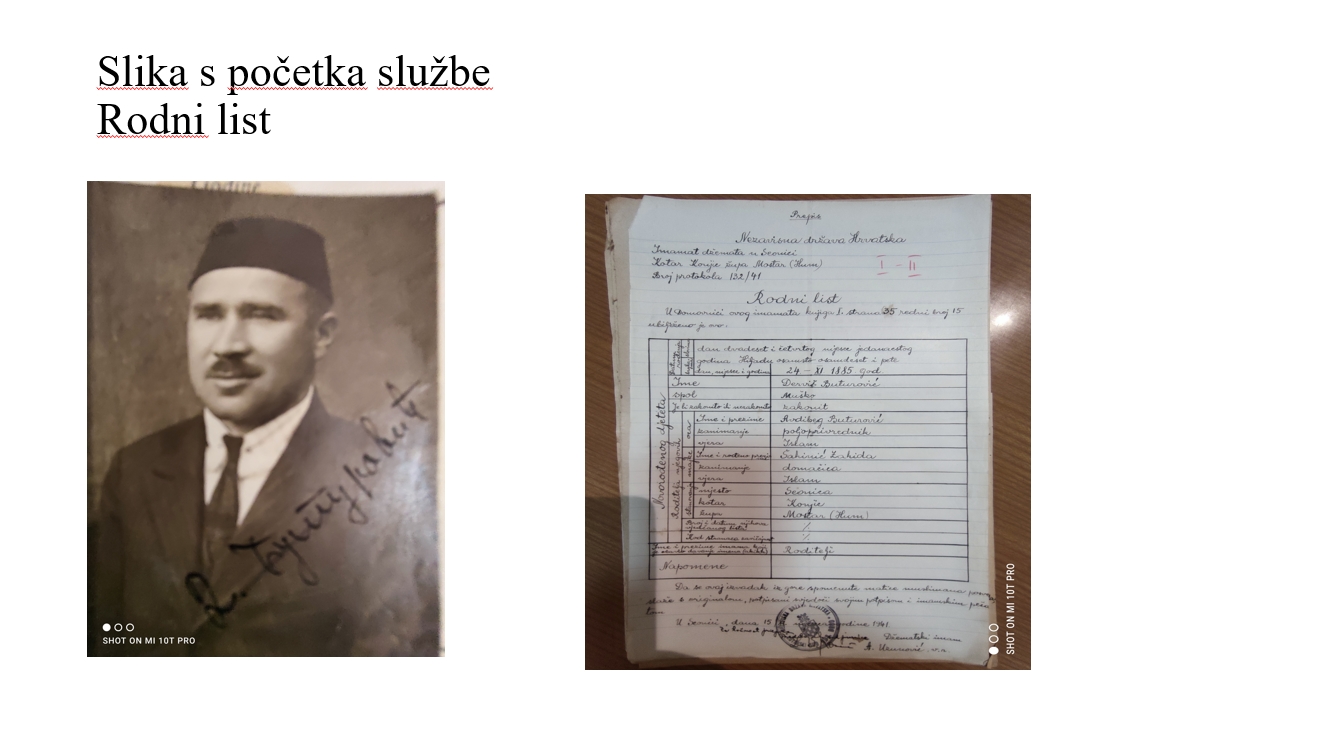 Slika s početka službe
Rodni list
godine
SHOT ON MI 10T PRO
Prepis
Nezavisna država Hrvatska
Imamat džemata u Seonici
Kotar Konjic župa Mostar (Hum)
Broj protokola 132/41
I - II
Rodni list
U domovnici ovog imamata knjiga I. strana 35 redni broj 15
ubilježeno je ovo.
dan dvadeset i četvrtog mjesec jedanaestog
godina Hiljadu osamsto osamdeset i pete
dan, mjesec i godina 24 - XI 1885 god.
Ime Derviš Buturović
spol Muško
Je li zakonito ili nezakonito zakonit
Novorođenog djeteta
Roditelji njegovi
Ime i prezime Avdibeg Buturović
zanimanje poljoprivrednik
vjera Islam
Ime i rodbeno prezime Šahinić Zahida
zanimanje domaćica
vjera Islam
mjesto Seonica
kotar Konjic
župa Mostar (Hum)
Roditelji
Napomene
Da se ovaj izvadak iz gore spomenute matice muslimana
slaže s originalom, potpisani svjedoči svojim potpisom i imamskim
U Seonici, dana 15 godine 1941
Džematski imam
SHOT ON MI 10T PRO